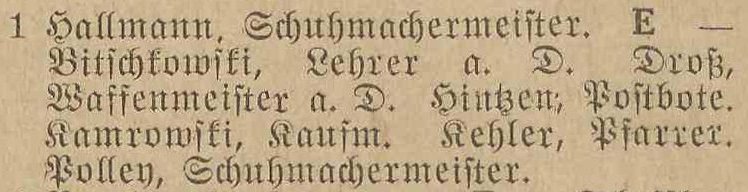 1 Hallmann, Schuhmachermeister. E —
Bitschkowski, Lehrer a. D. Droß,
Waffenmeister a. D. Hintzen, Postbote.
Kamrowski, Kaufm. Kehler, Pfarrer.
Polley, Schuhmachermeister.